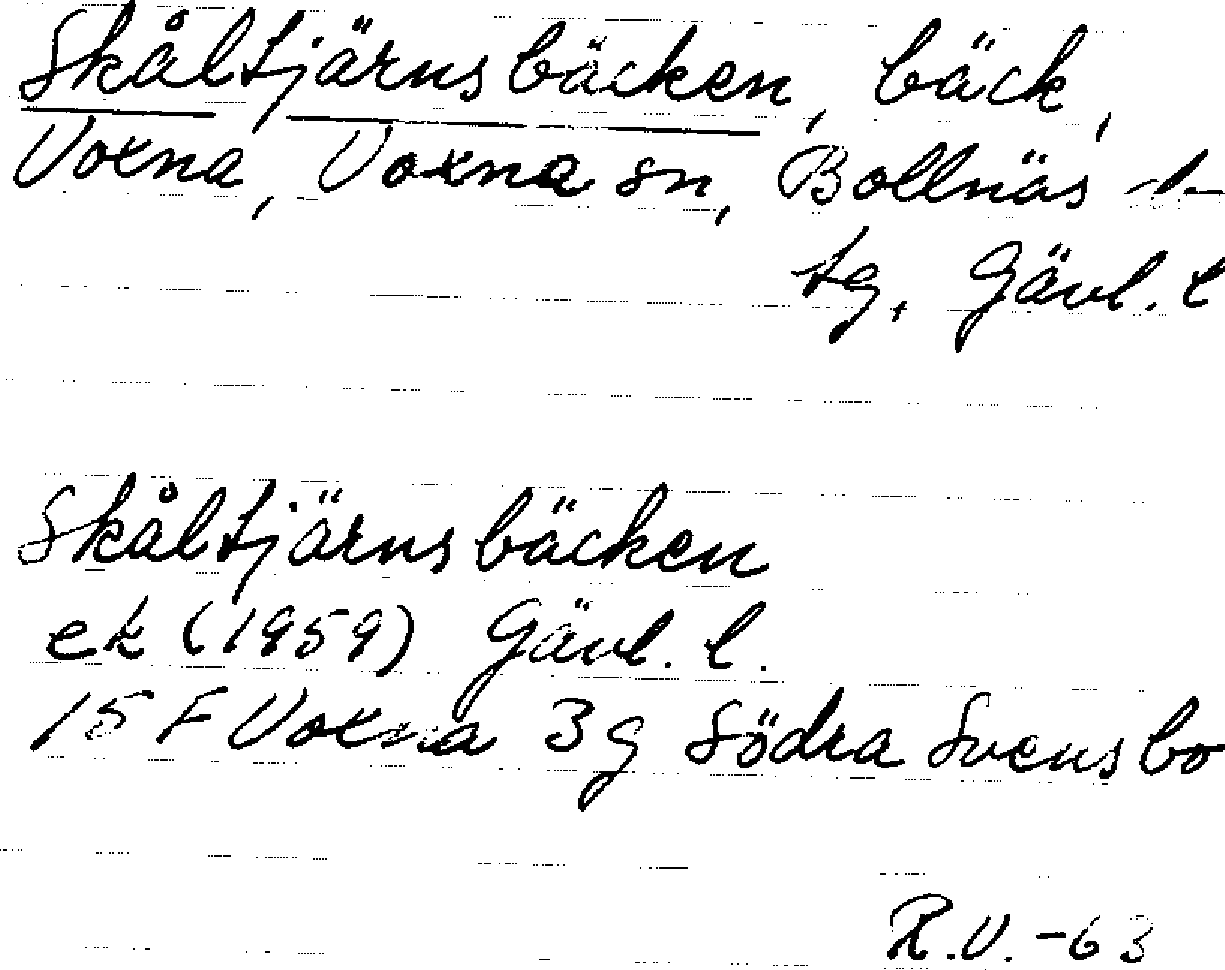 Skåltjärnsbäcken, bäck,
Voxna, Voxna sn, Bollnäs
tg, Gävl. l
Skåltjärnsbäcken
ek (1959) Gävl. l.
15 F Voxna 3g Södra Svensbo
R.V. -63